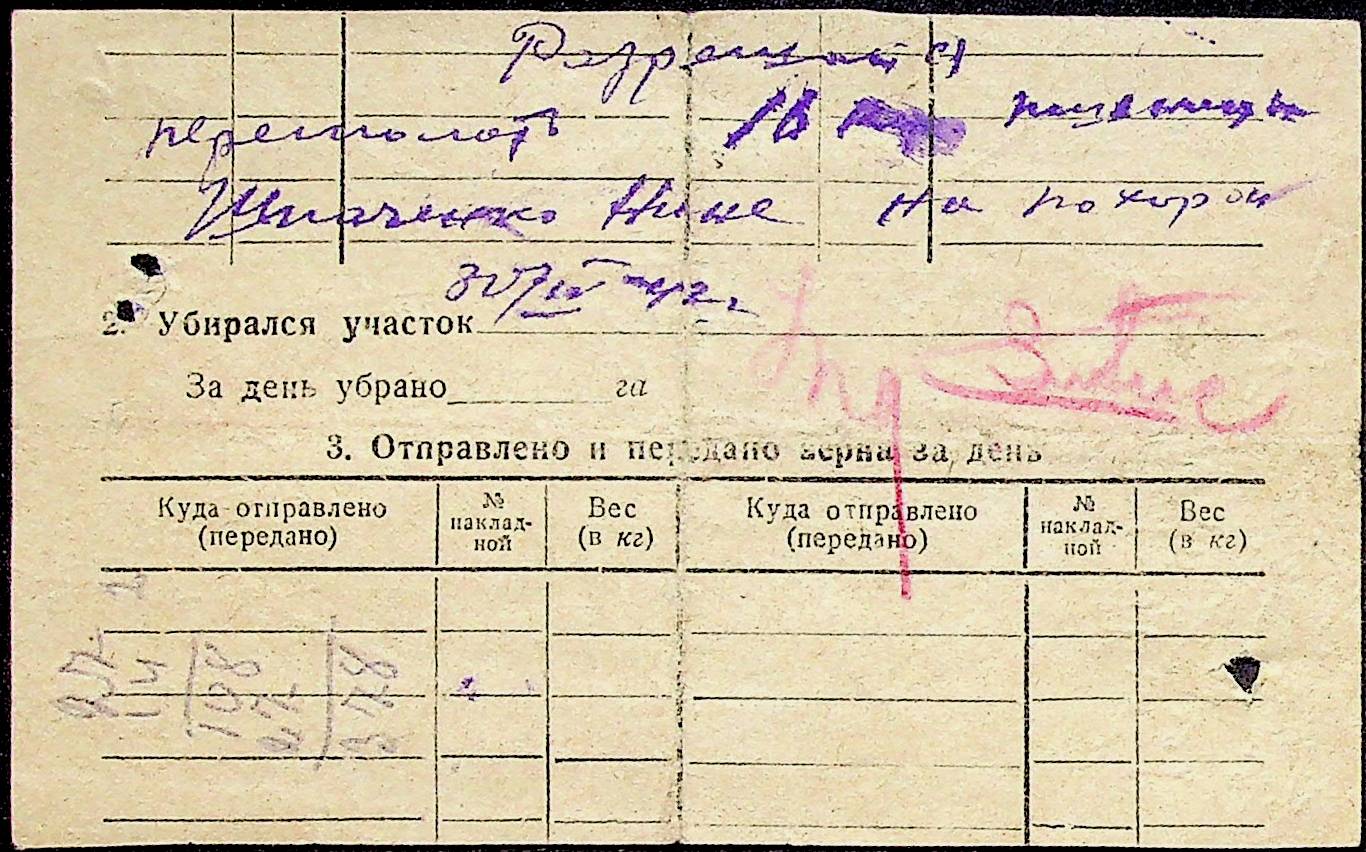 Разрешается
перемолоть 16 кг пшеницы
Шпаченко Нине на похорон
30/IV-42 г
2. Убирался участок
За день убрано га
3. Отправлено и передано зерна за день
Куда отправлено (передано) № наклад-ной Вес (в кг) Куда отправлено (передано) № наклад-ной Вес (в кг)
108